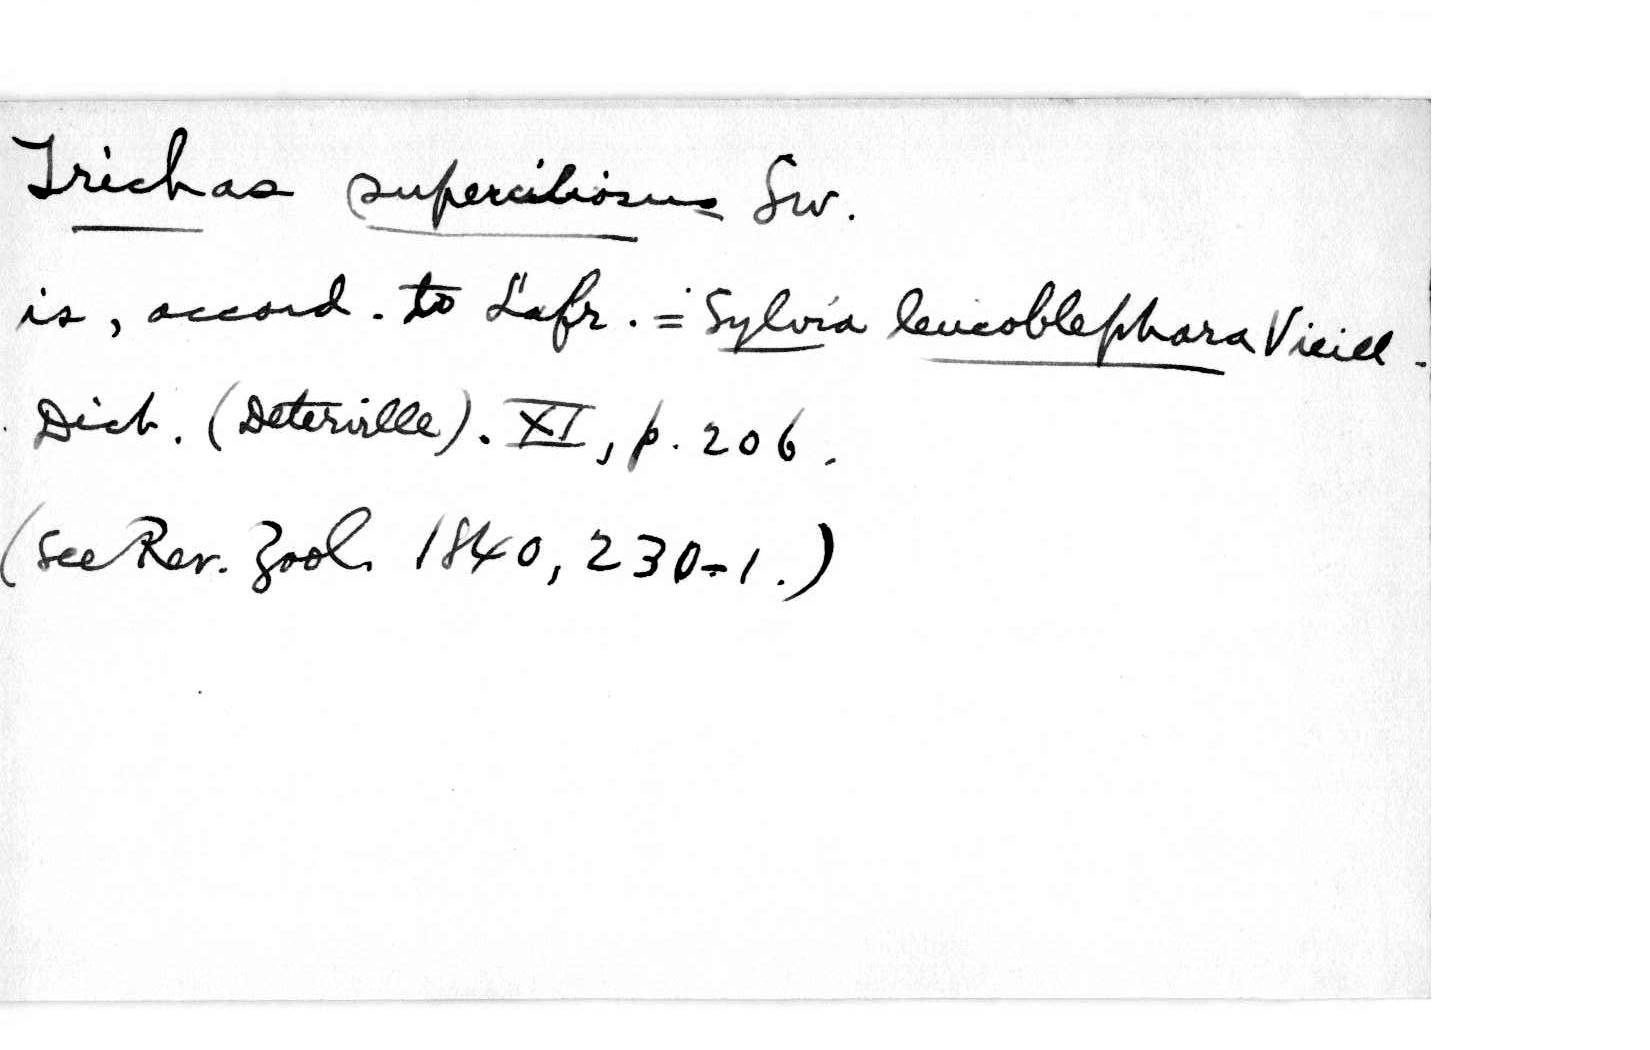 Trichas superciliosus Sw.
is, accord. to Lafr. = Sylvia leucoblephara Vieill.
Dict. (Deterville). XI, p. 206.
(see Rev. Zool. 1840, 230-1.)